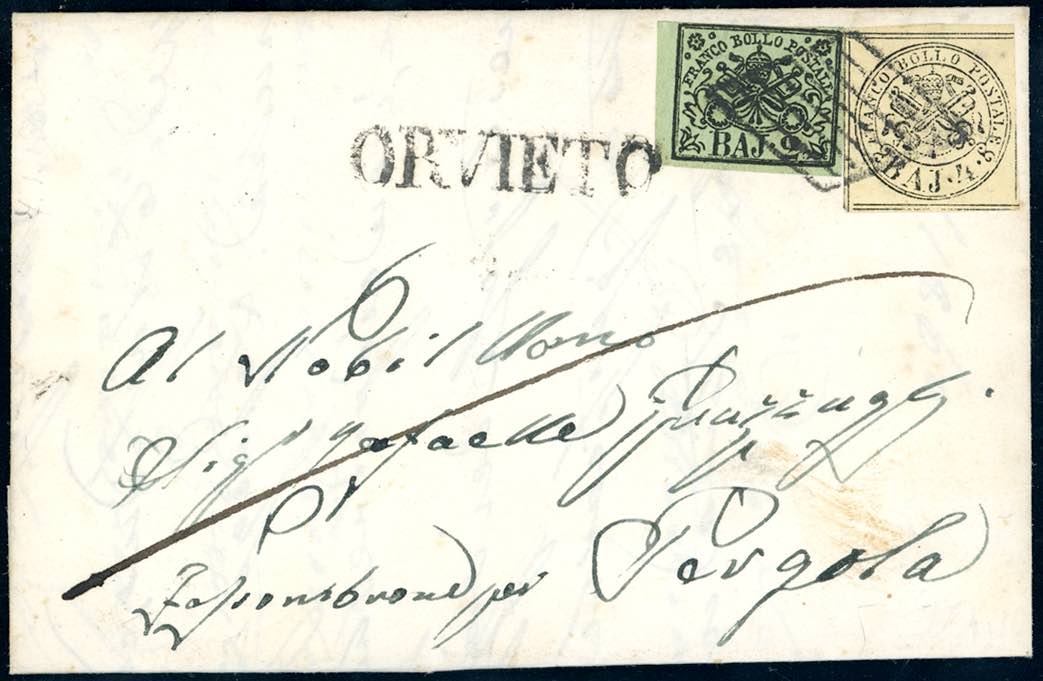 FRANCO BOLLO POSTALE
BAJ 2
FRANCO BOLLO POSTALE
BAJ. 4
ORVIETO
Al Nobil Uomo
Sigr Rafaelle
per Pergola